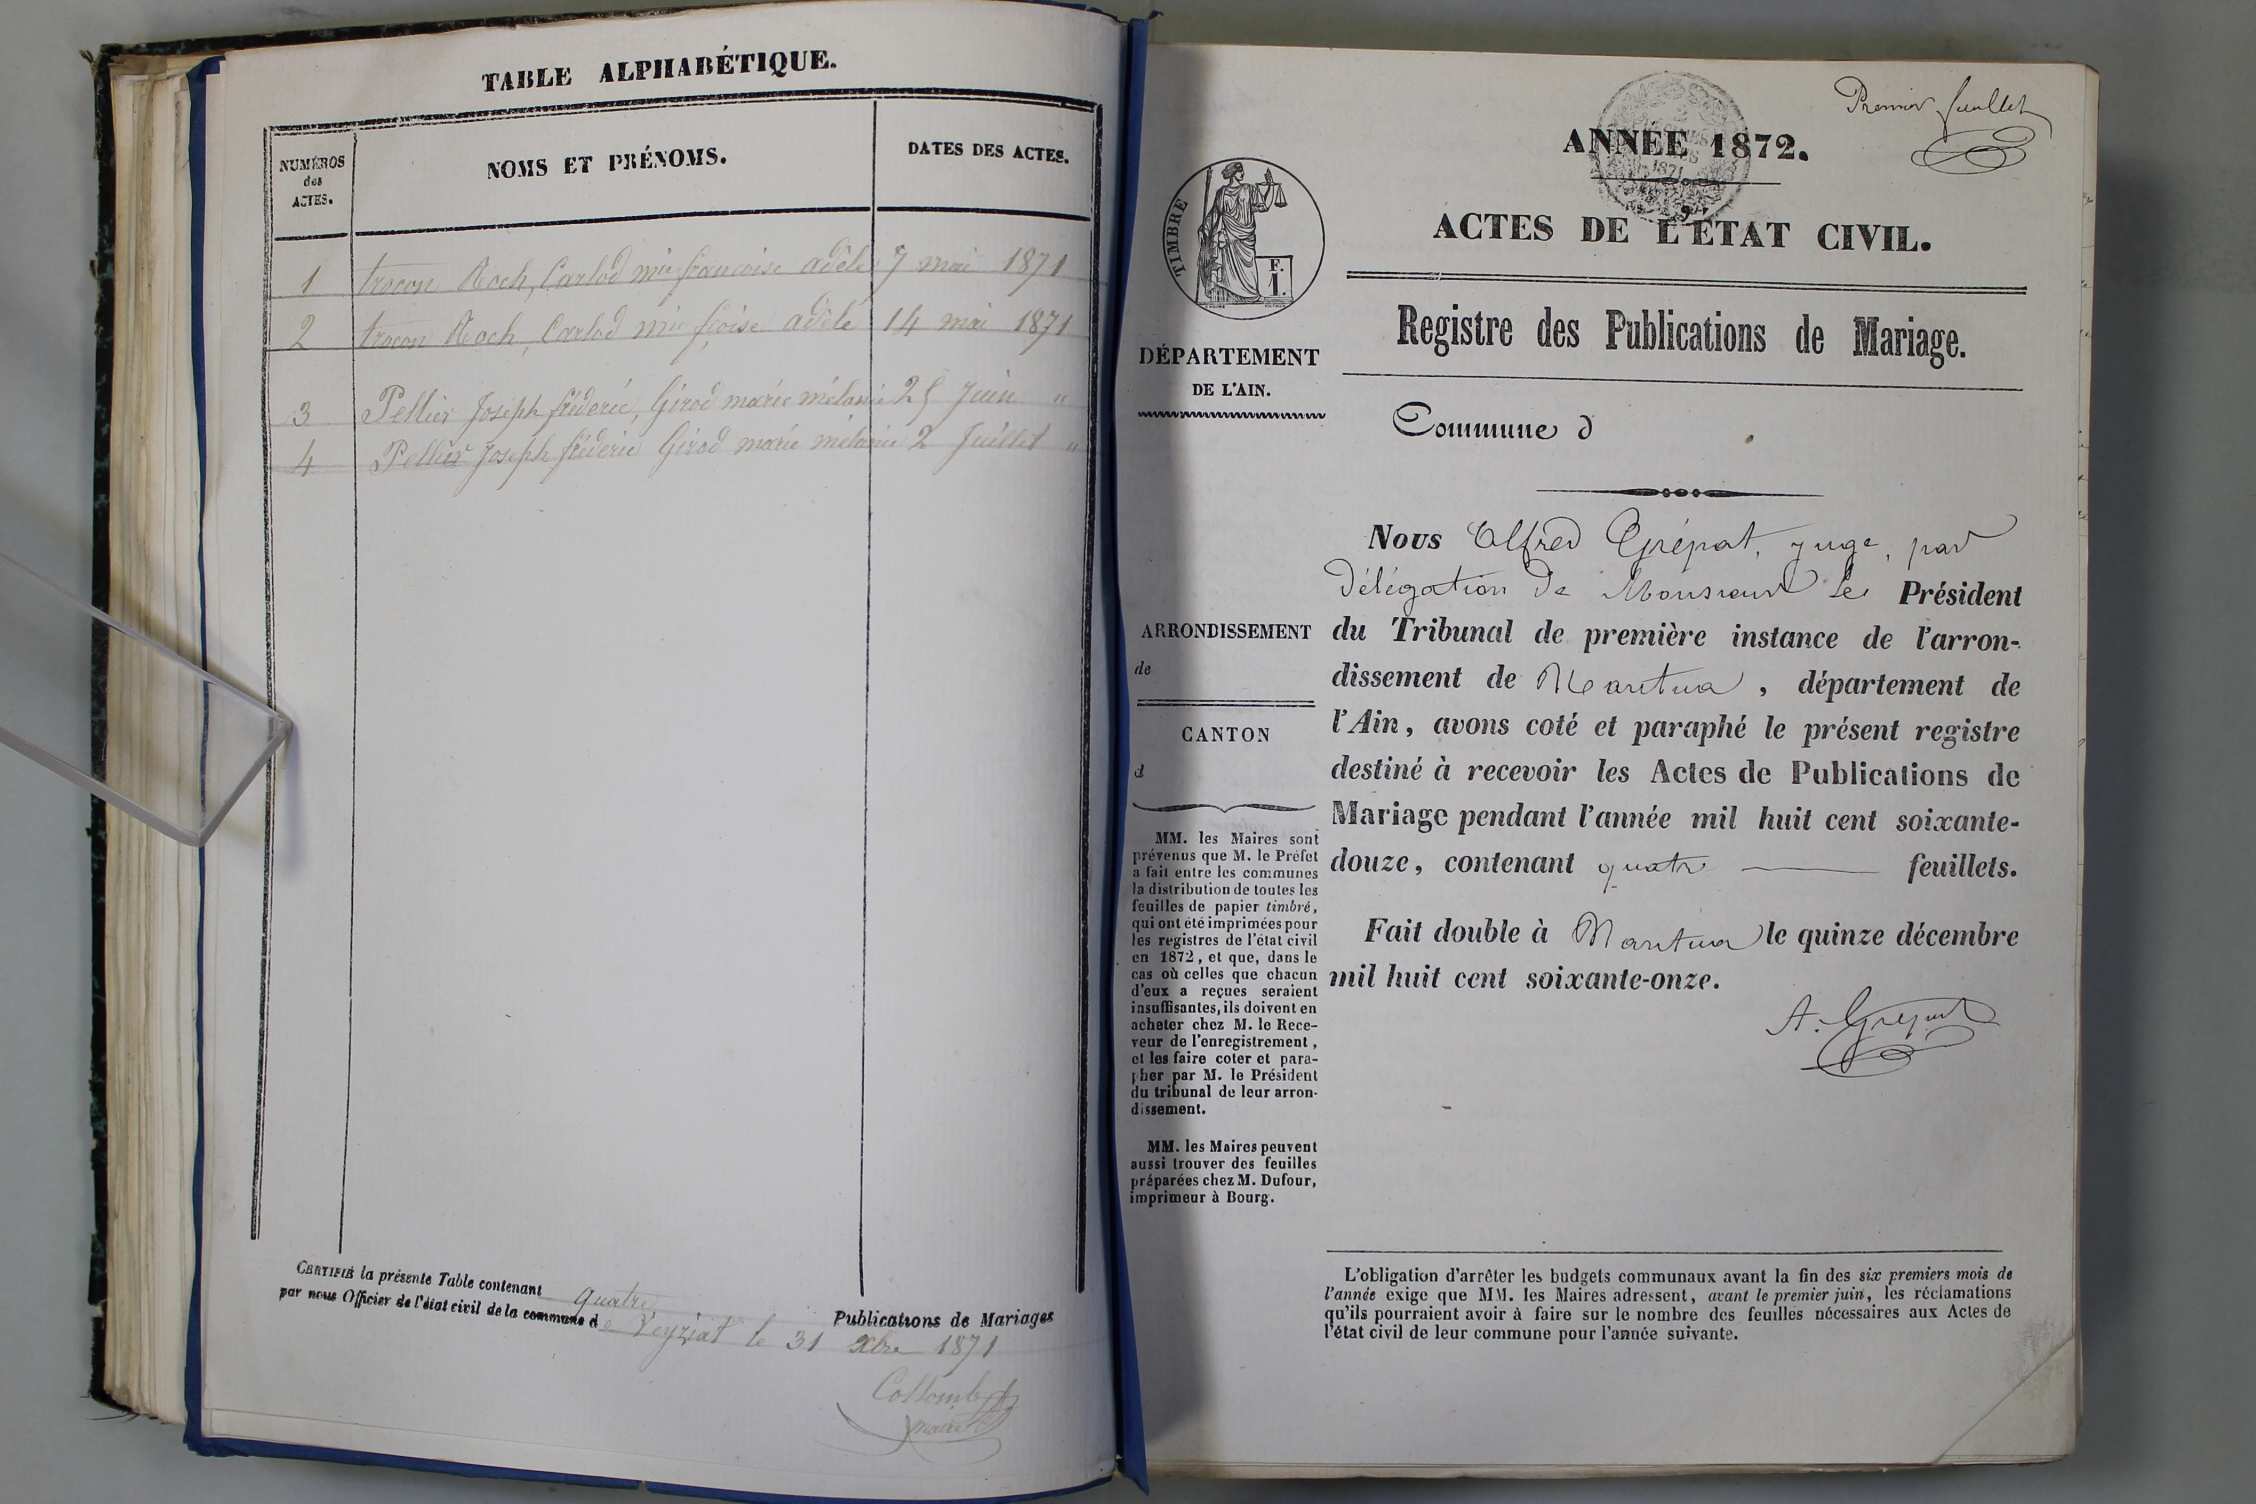 TABLE ALPHABÉTIQUE.
NUMÉROS
des
ACTES.
NOMS ET PRÉNOMS.
DATES DES ACTES.
1 trocon Roch, Carlod mie françoise adèle 7 mai 1871
2 trocon Roch, Carlod mie fçoise adèle 14 mai 1871
3 Pellier Joseph fréderic, Girod marie mélanie 25 Juin "
4 Pellier Joseph fréderic Girod marie mélanie 2 Juillet "
CERTIFIÉ la présente Table contenant quatre Publications de Mariages
par nous Officier de l'état civil de la commune de Veyziat le 31 xbre 1871
Collombet
maire
Premier feuillet
ANNÉE 1872.
1871
ACTES DE L'ÉTAT CIVIL.
Registre des Publications de Mariage.
TIMBRE
F.
1.
DÉPARTEMENT
DE L'AIN.
ARRONDISSEMENT
de
CANTON
d
MM. les Maires sont
prévenus que M. le Préfet
a fait entre les communes
la distribution de toutes les
feuilles de papier timbré,
qui ont été imprimées pour
les registres de l'état civil
en 1872, et que, dans le
cas où celles que chacun
d'eux a reçues seraient
insuffisantes, ils doivent en
acheter chez M. le Rece-
veur de l'enregistrement,
et les faire coter et para-
pher par M. le Président
du tribunal de leur arron-
dissement.
MM. les Maires peuvent
aussi trouver des feuilles
préparées chez M. Dufour,
imprimeur à Bourg.
Commune d
Nous Alfred Grépat, juge, par
délégation de Monsieur le Président
du Tribunal de première instance de l'arron-
dissement de Nantua, département de
l'Ain, avons coté et paraphé le présent registre
destiné à recevoir les Actes de Publications de
Mariage pendant l'année mil huit cent soixante-
douze, contenant quatre feuillets.
Fait double à Nantua le quinze décembre
mil huit cent soixante-onze.
A. Grépat
L'obligation d'arrêter les budgets communaux avant la fin des six premiers mois de
l'année exige que MM. les Maires adressent, avant le premier juin, les réclamations
qu'ils pourraient avoir à faire sur le nombre des feuilles nécessaires aux Actes de
l'état civil de leur commune pour l'année suivante.